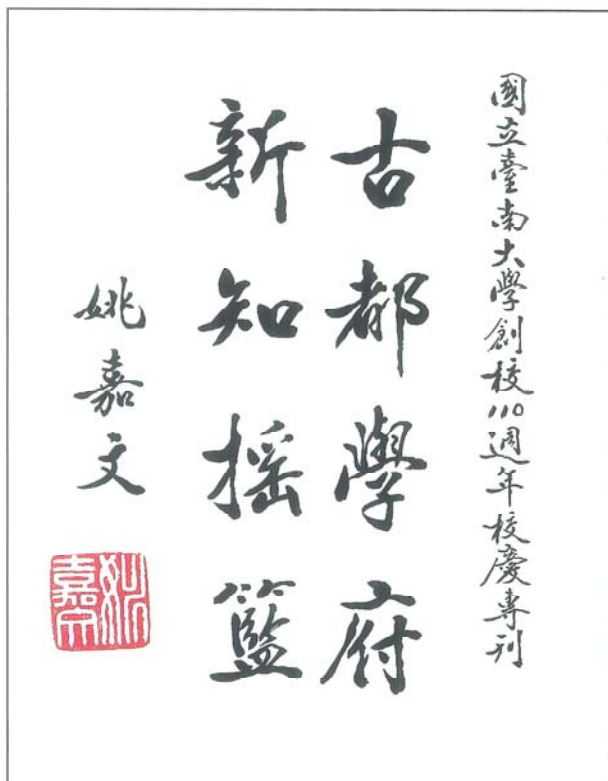 國立臺南大學創校110週年校慶專刊
古都學府
新知搖籃
姚嘉文
姚嘉文